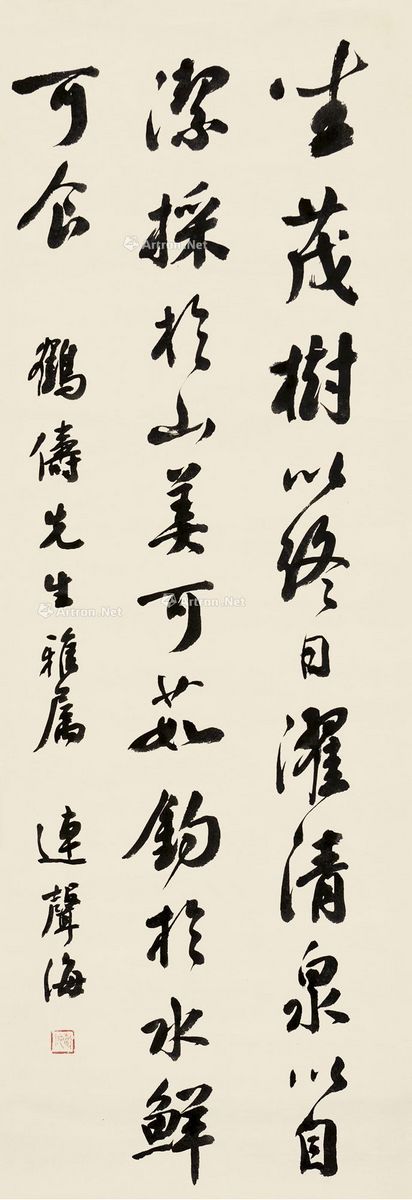 坐茂樹以終日濯清泉以自
潔採於山美可茹釣於水鮮
可食
鶴儔先生雅属 連聲海
Artron.Net
Artron.Net
Artron.Net
Artron.Net